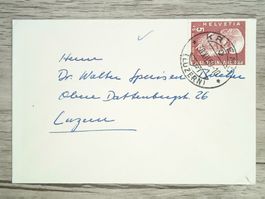 HELVETIA
5
KRIENS
(LUZERN)
Herrn
Dr. Walter Speiser
Obere Dattenbergstr. 26
Luzern